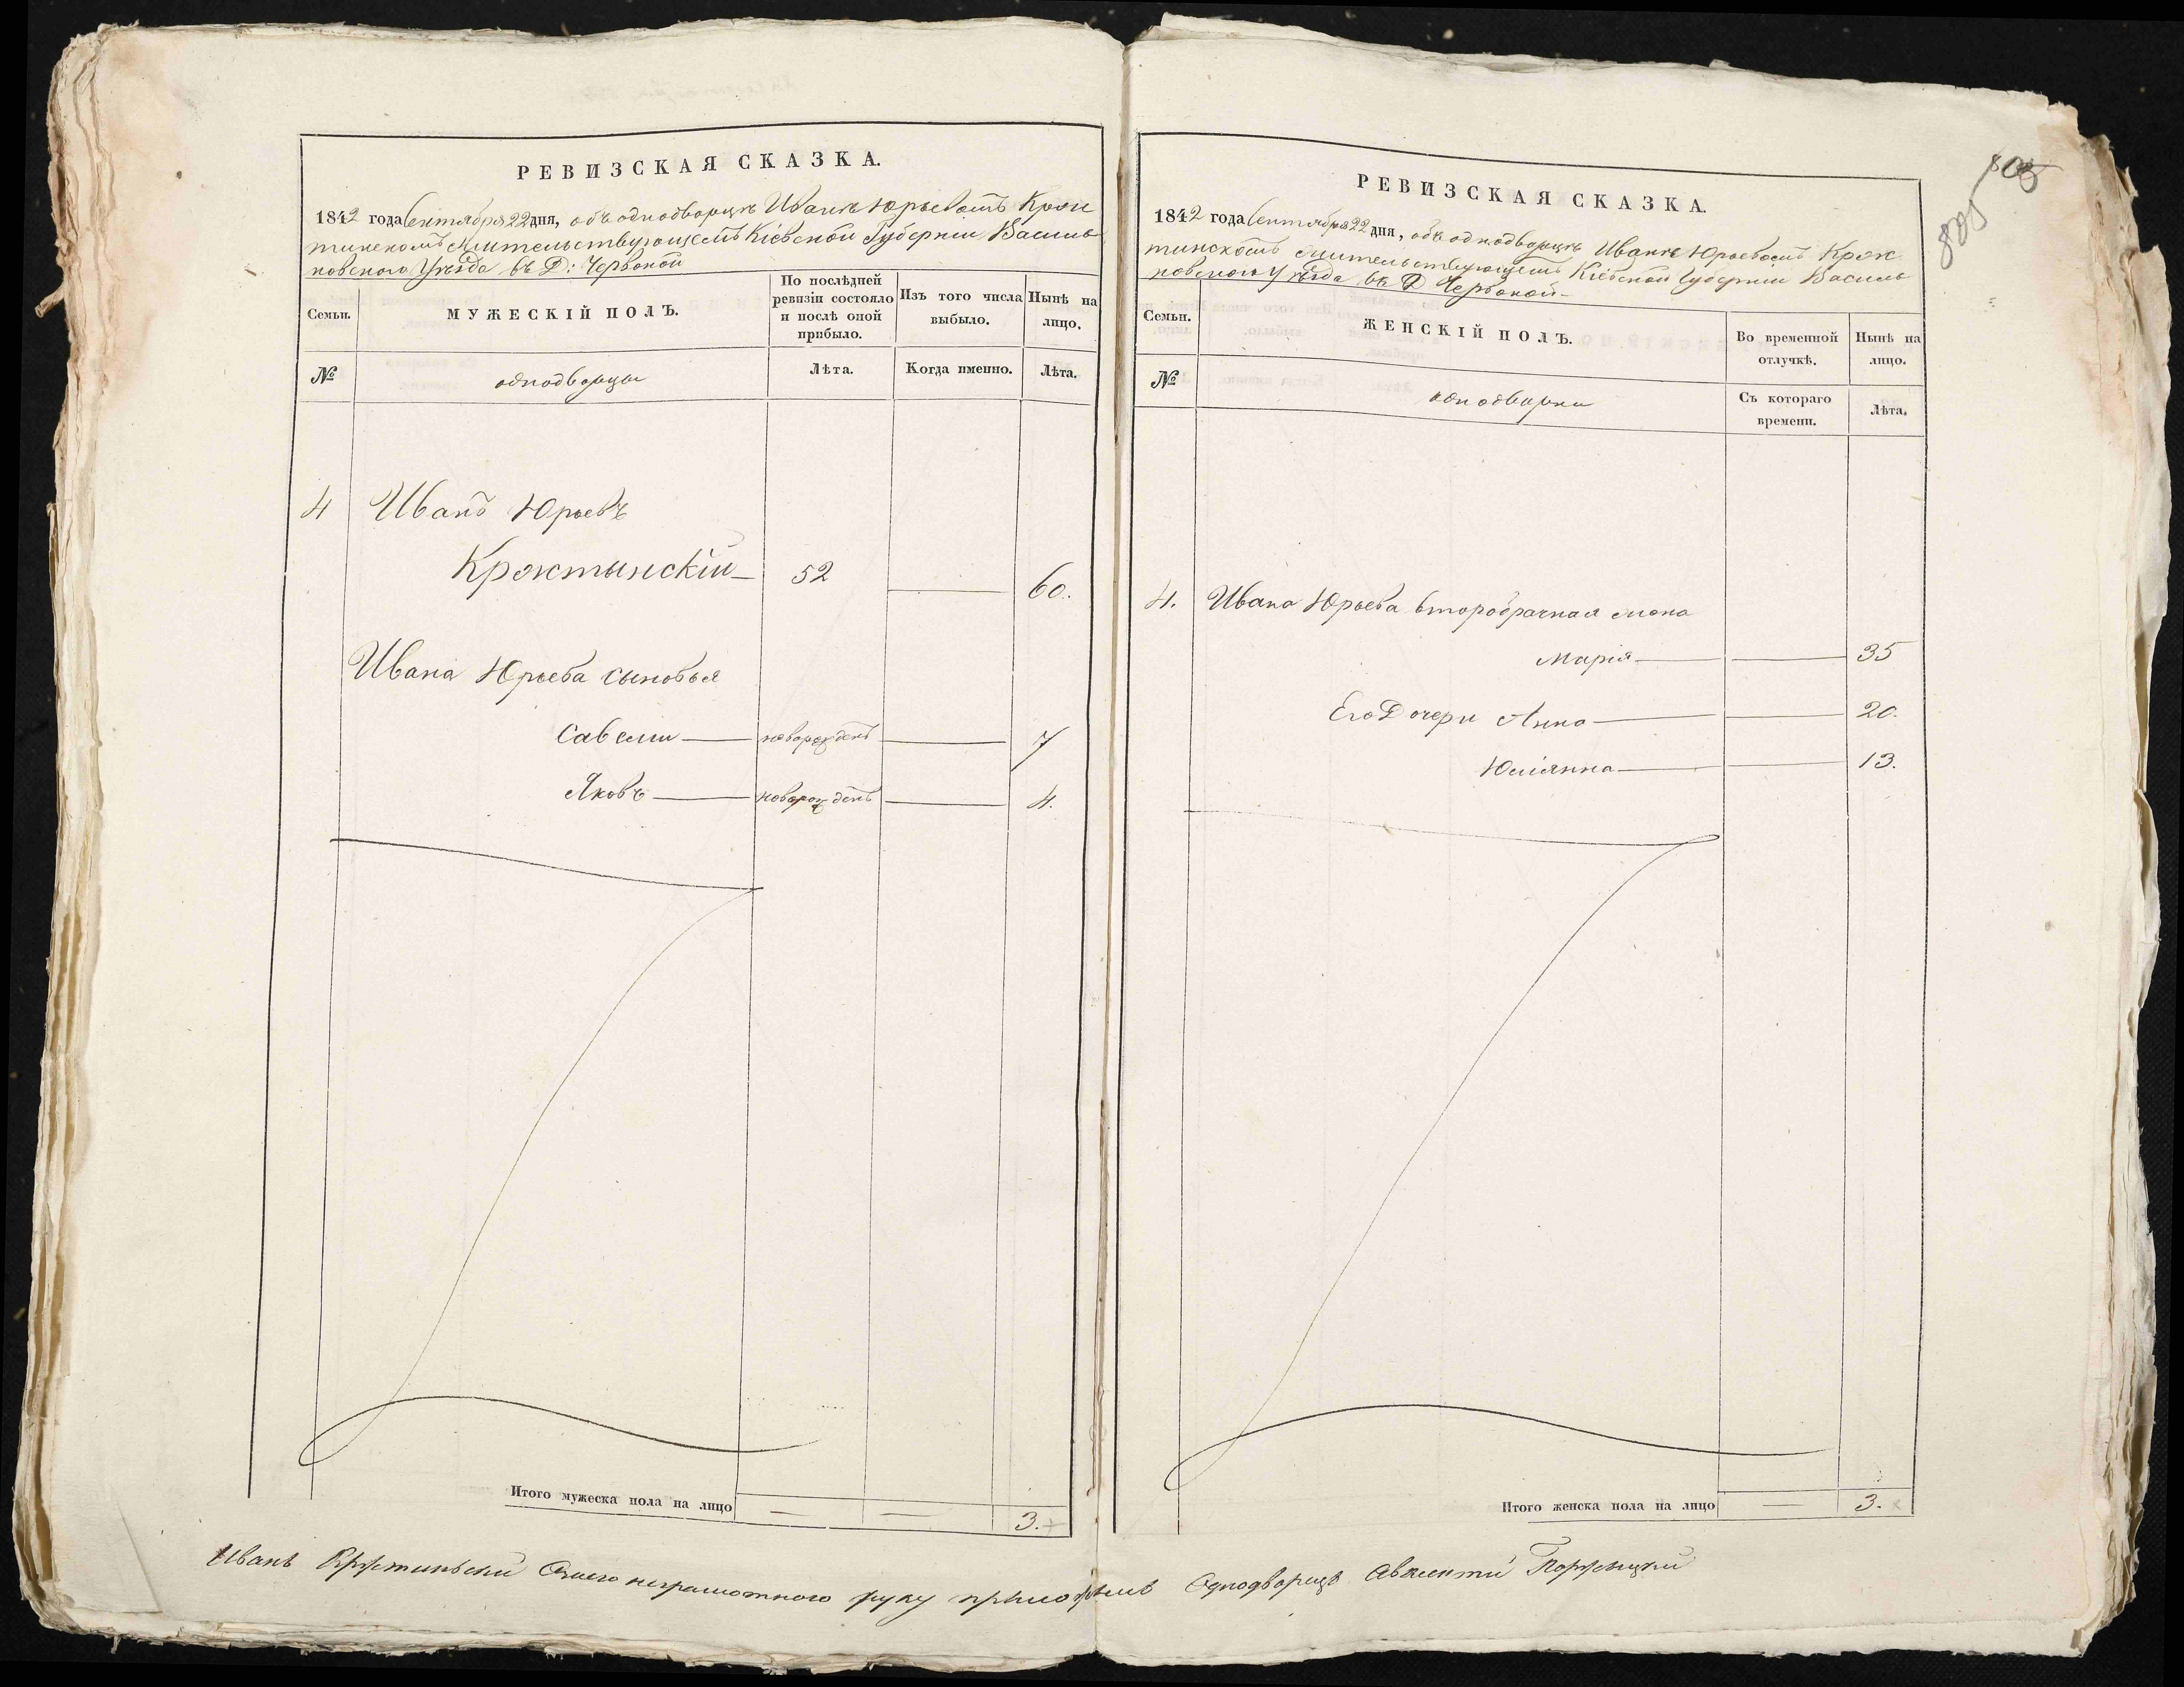 РЕВИЗСКАЯ СКАЗКА.
1842 года Сентября 22 дня, объ однодворцѣ Иванѣ Юрьевомъ Крж
тинскомъ жительствующемъ Кіевской Губерніи Василь
ковского Уѣзда въ Д: Червоной
Семьи.
МУЖЕСКІЙ ПОЛЪ.
По послѣдней
ревизіи состояло
и послѣ оной
прибыло.
Изъ того числа
выбыло.
Нынѣ на
лицо.
№
однодворцы
Лѣта.
Когда именно.
Лѣта.
4 Иванъ Юрьевъ
Кржтынскій 52 60.
Ивана Юрьева сыновья
Савелий новорожденъ 7
Яковъ новорожденъ 4.
Итого мужеска пола на лицо 3.
РЕВИЗСКАЯ СКАЗКА.
1842 года Сентября 22 дня, объ однодворцѣ Иванѣ Юрьевомъ Крж
тинскомъ жительствующемъ Кіевской Губерніи Василь
ковского Уѣзда въ Д Червоной
805
Семьи.
ЖЕНСКІЙ ПОЛЪ.
Во временной
отлучкѣ.
Нынѣ на
лицо.
№
однодворки
Съ котораго
времени.
Лѣта.
4. Ивана Юрьева второбрачная жена
Марія 35
Его Дочери Анна 20.
Юліянна 13.
Итого женска пола на лицо 3.
Иванъ неграмотного руку приложилъ Однодворецъ